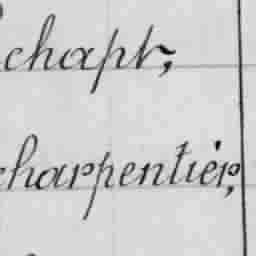 chapt,
charpentier,